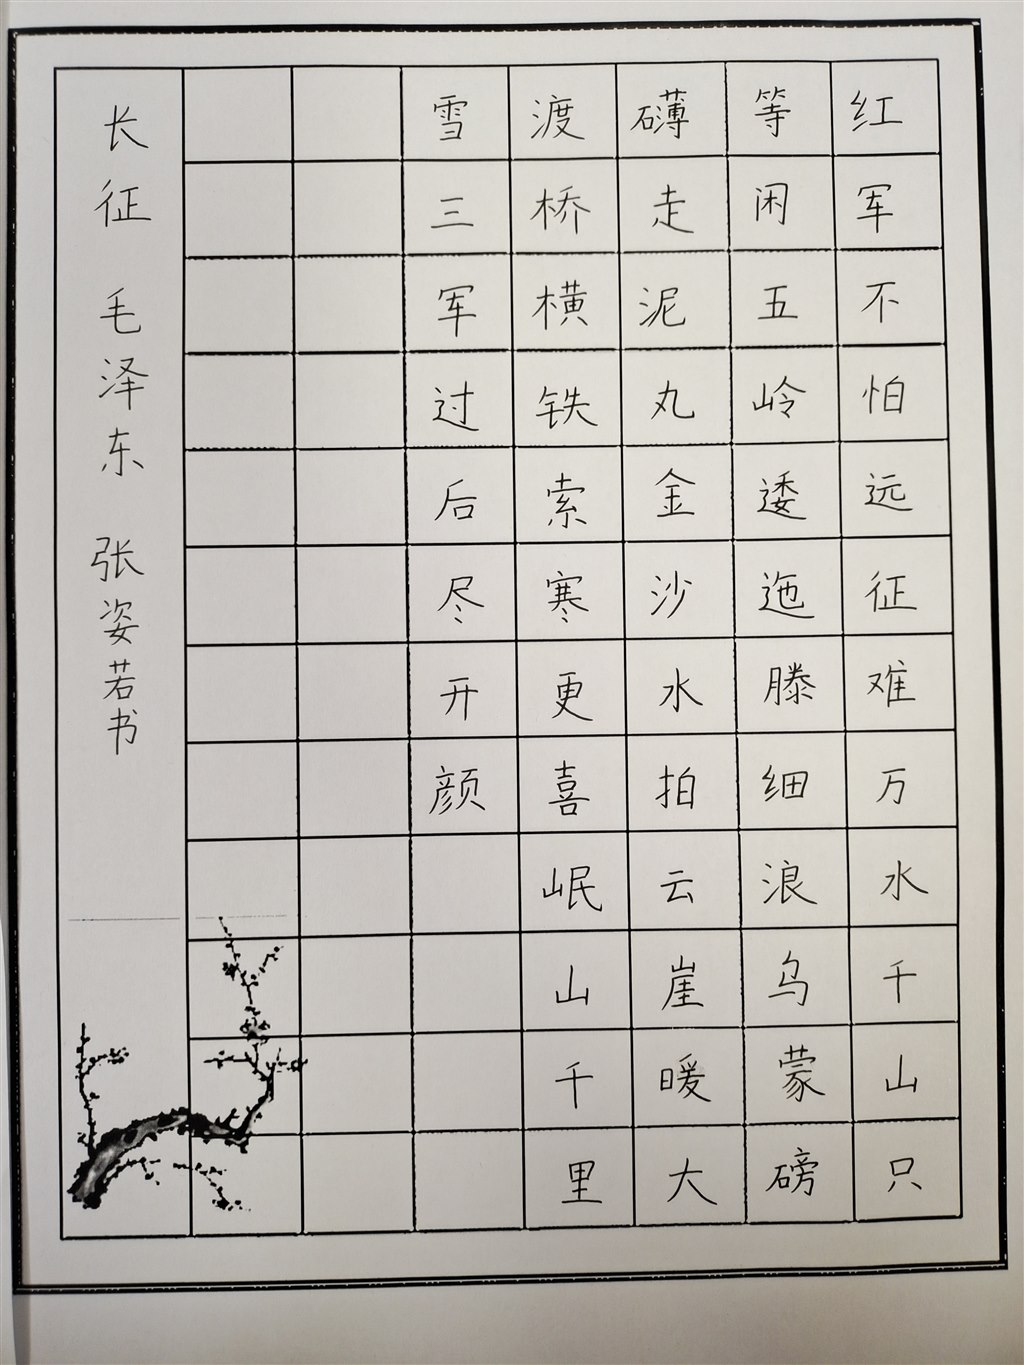 红军不怕远征难万水千山只
等闲五岭逶迤滕细浪乌蒙磅
礴走泥丸金沙水拍云崖暖大
渡桥横铁索寒更喜岷山千里
雪三军过后尽开颜
长征 毛泽东 张姿若书